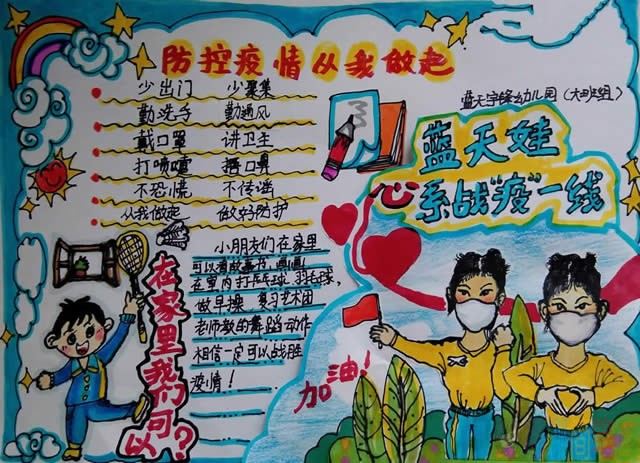 防控疫情从我做起
少出门 少聚集
勤洗手 勤通风
戴口罩 讲卫生
打喷嚏 捂口鼻
不恐慌 不传谣
从我做起 做好防护
蓝天宇锋幼儿园(大班组)
蓝天娃
心系战"疫"一线
在家里我们可以?
小朋友们在家里
可以看故事书,画画!
在室内打乒乓球、羽毛球,
做早操、复习艺术团
老师教的舞蹈动作
相信一定可以战胜
疫情!
加油!